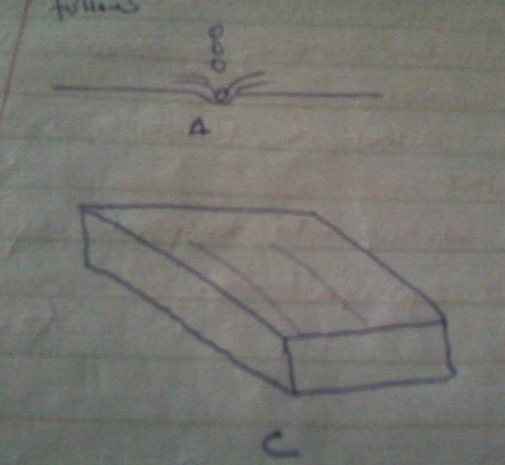 follows
A
C